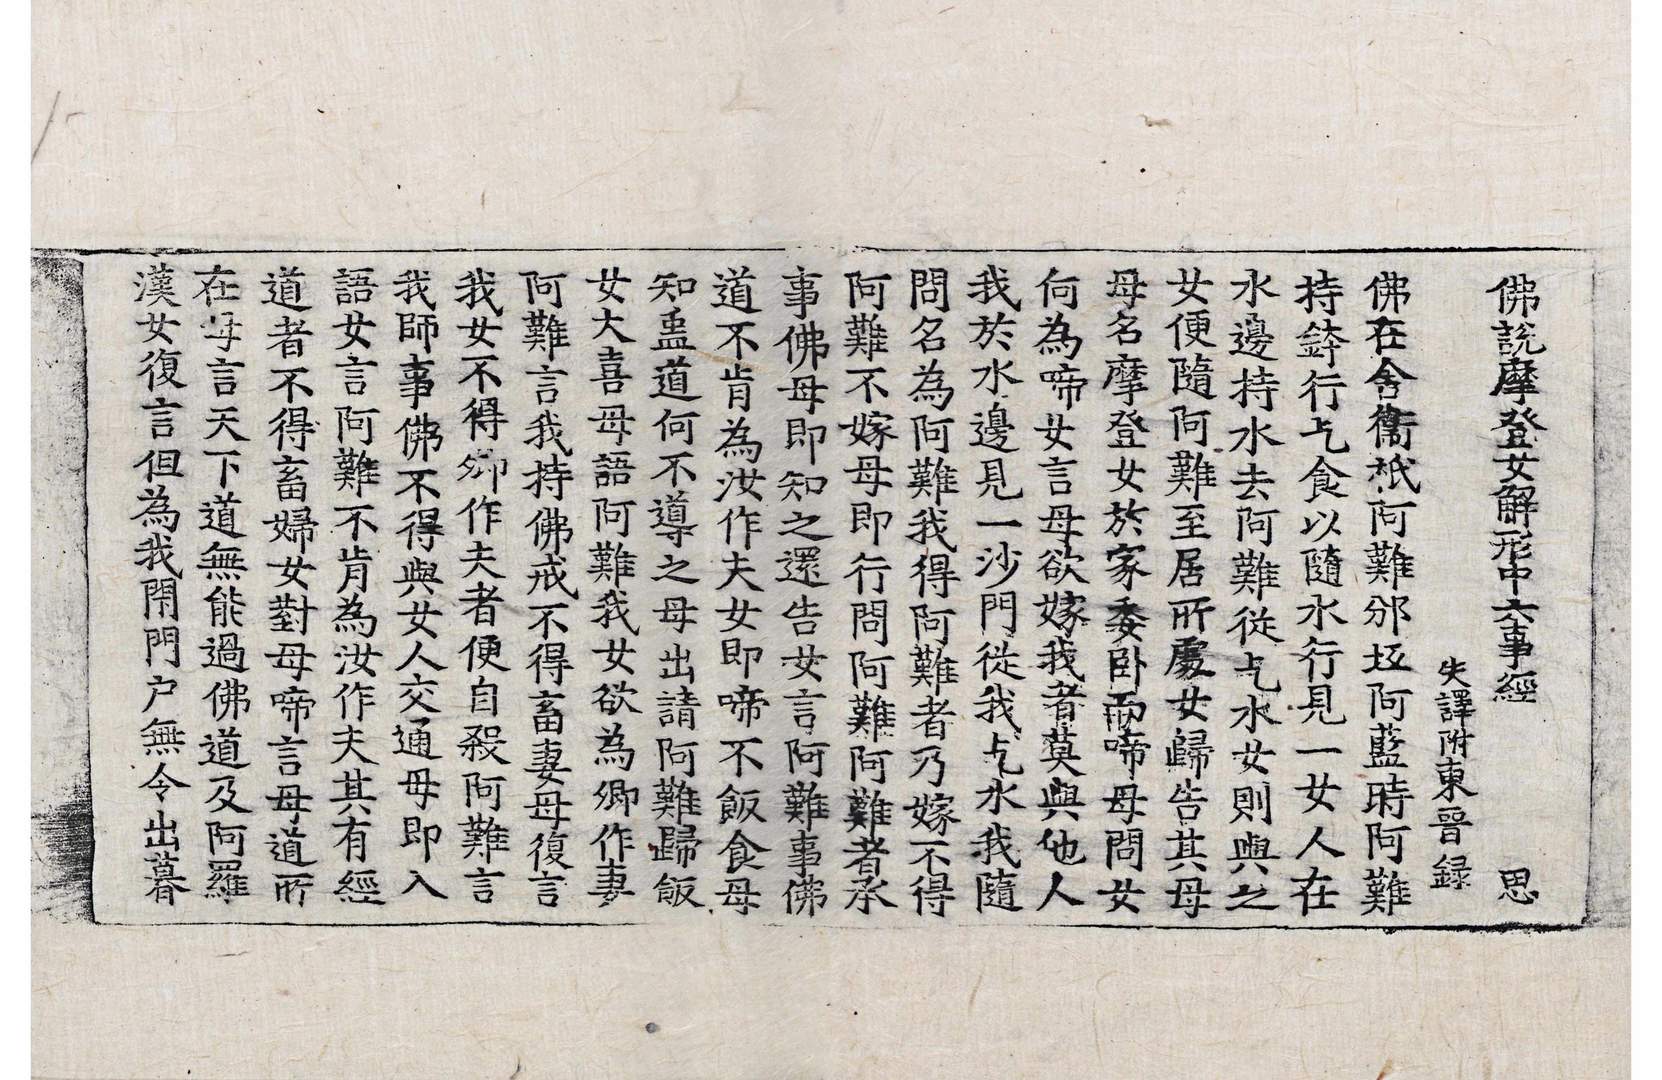 佛說摩登女解形中六事經 思
失譯附東晉錄
佛在舍衞祇阿難邠坻阿藍時阿難
持鉢行乞食以隨水行見一女人在
水邊持水去阿難從乞水女則與之
女便隨阿難至居所處女歸告其母
母名摩登女於家委卧而啼母問女
何為啼女言母欲嫁我者莫與他人
我於水邊見一沙門從我乞水我隨
問名為阿難我得阿難者乃嫁不得
阿難不嫁母即行問阿難阿難者承
事佛母即知之還告女言阿難事佛
道不肯為汝作夫女即啼不飯食母
知蠱道何不導之母出請阿難歸飯
女大喜母語阿難我女欲為卿作妻
阿難言我持佛戒不得畜妻母復言
我女不得卿作夫者便自殺阿難言
我師事佛不得與女人交通母即入
語女言阿難不肯為汝作夫其有經
道者不得畜婦女對母啼言母道所
在母言天下道無能過佛道及阿羅
漢女復言但為我閇門戶無令出暮